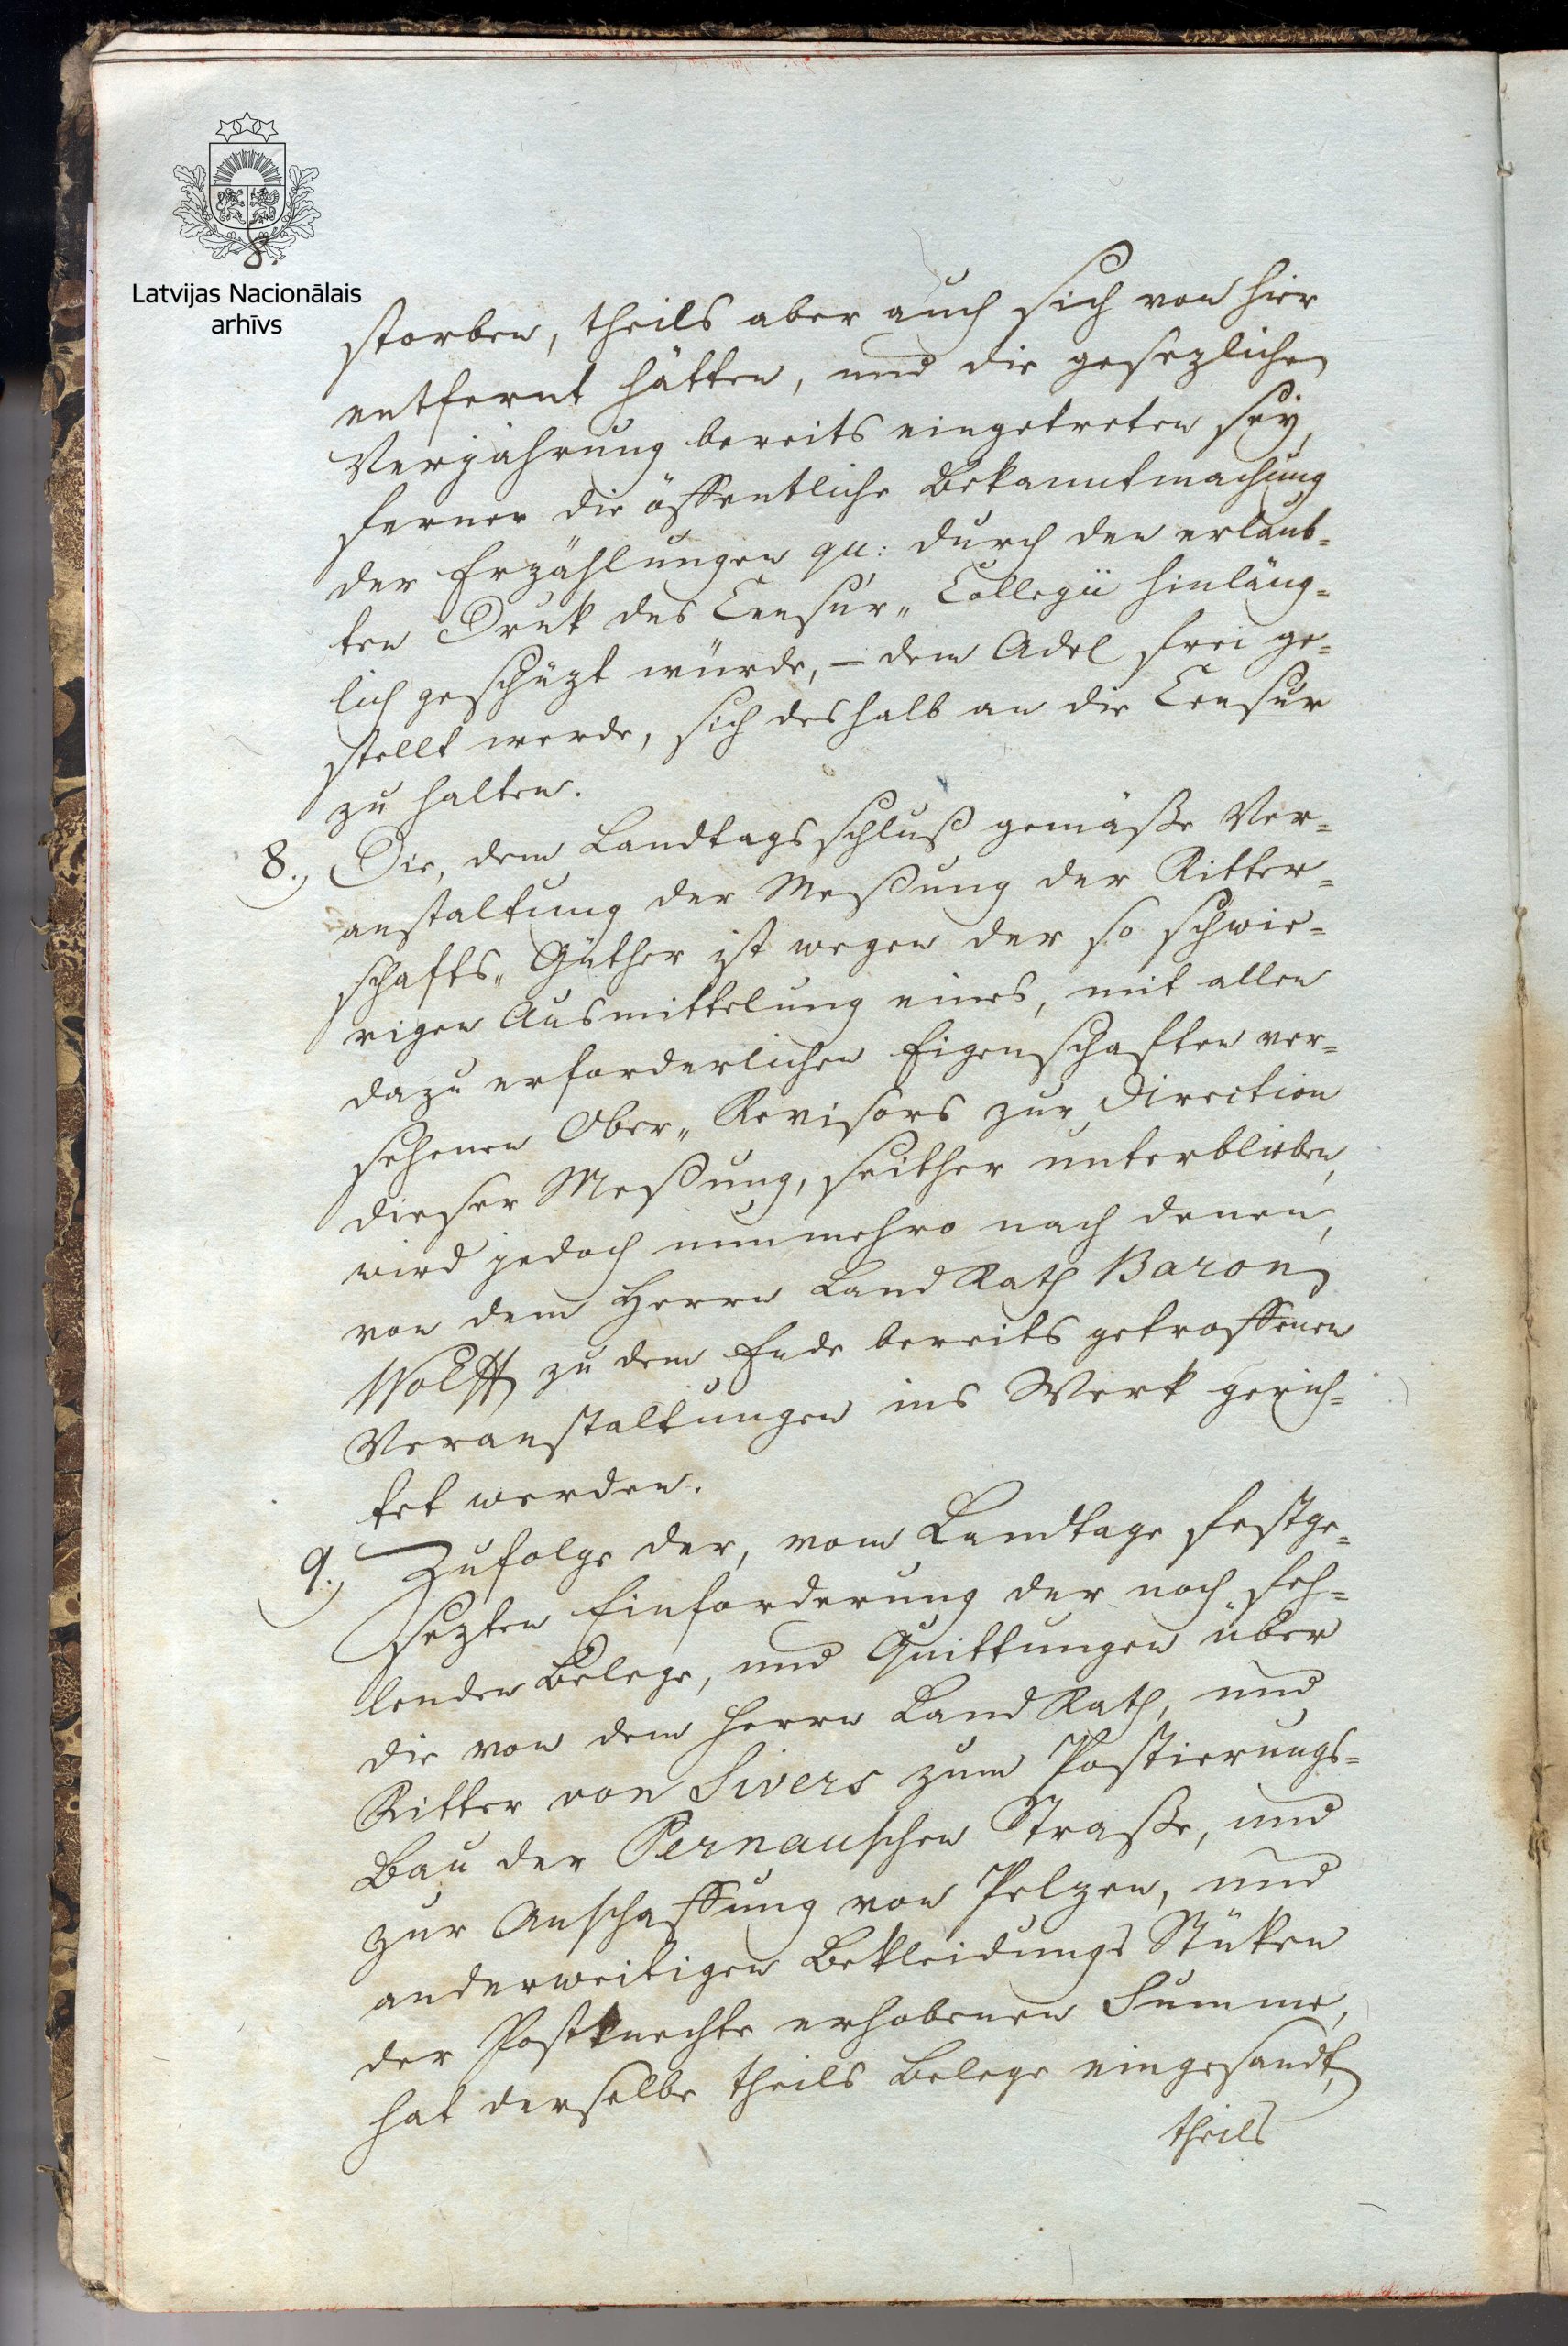 8.
Latvijas Nacionālais
arhīvs
storben, theils aber auch sich von hier
entfernt hätten, und die gesezliche
Verjährung bereits eingetreten sey,
ferner die öffentliche Bekanntmachung
der Erzählungen qu: durch den erlaub-
ten Druk des Censur„ Collegii hinläng-
lich geschüzt würde, – dem Adel frei ge-
stellt werde, sich deshalb an die Censur
zu halten.
8., Die, dem Landtagsschluß gemäße Ver-
anstaltung der Meßung der Ritter-
schafts„ Güther ist wegen der so schwie-
rigen Ausmittelung eines, mit allen
dazu erforderlichen Eigenschaften ver-
sehenen Ober„ Revisors zur Direction
dieser Meßung, seither unterblieben,
wird jedoch nunmehro nach denen,
von dem Herrn LandRath Baron
Wolff zu dem Ende bereits getroffenen
Veranstaltungen ins Werk gerich-
tet werden.
9., Zufolge der, vom Landtage festge-
sezten Einforderung der noch feh-
lenden Belege, und Quittungen über
die von dem Herrn LandRath, und
Ritter von Sivers zum Postierungs-
Bau der Pernauschen Straße, und
zur Anschaffung von Pelzen, und
anderweitigen Bekleidungs Stüken
der Postknechte erhobenen Summe,
hat derselbe theils Belege eingesandt,
theils